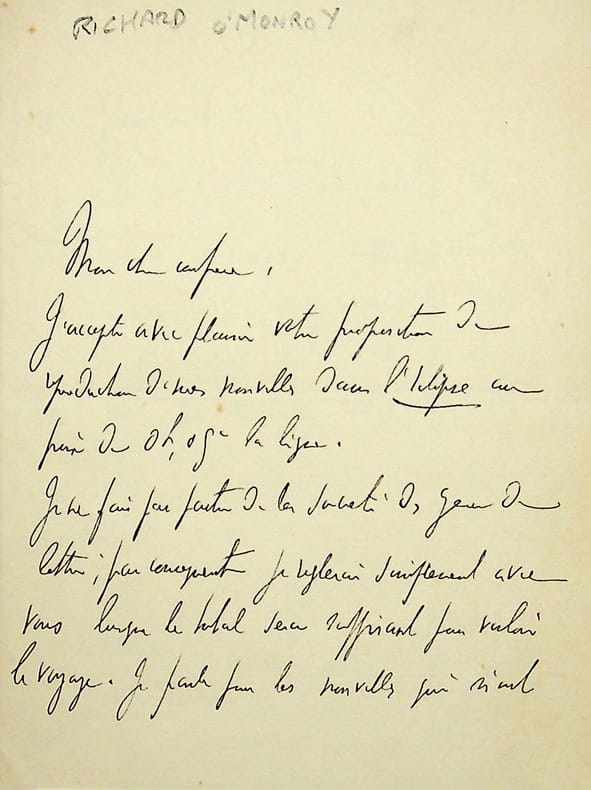 RICHARD O'MONROY
Mon cher confrère,
J'accepte avec plaisir votre proposition de
reproduction de mes nouvelles dans l'Eclipse au
prix de 0f,05c la ligne.
Je ne fais pas partie de la Société des gens de
lettres ; par conséquent je réglerai simplement avec
vous lorsque le total sera suffisant pour valoir
le voyage. Je parle pour les nouvelles qui